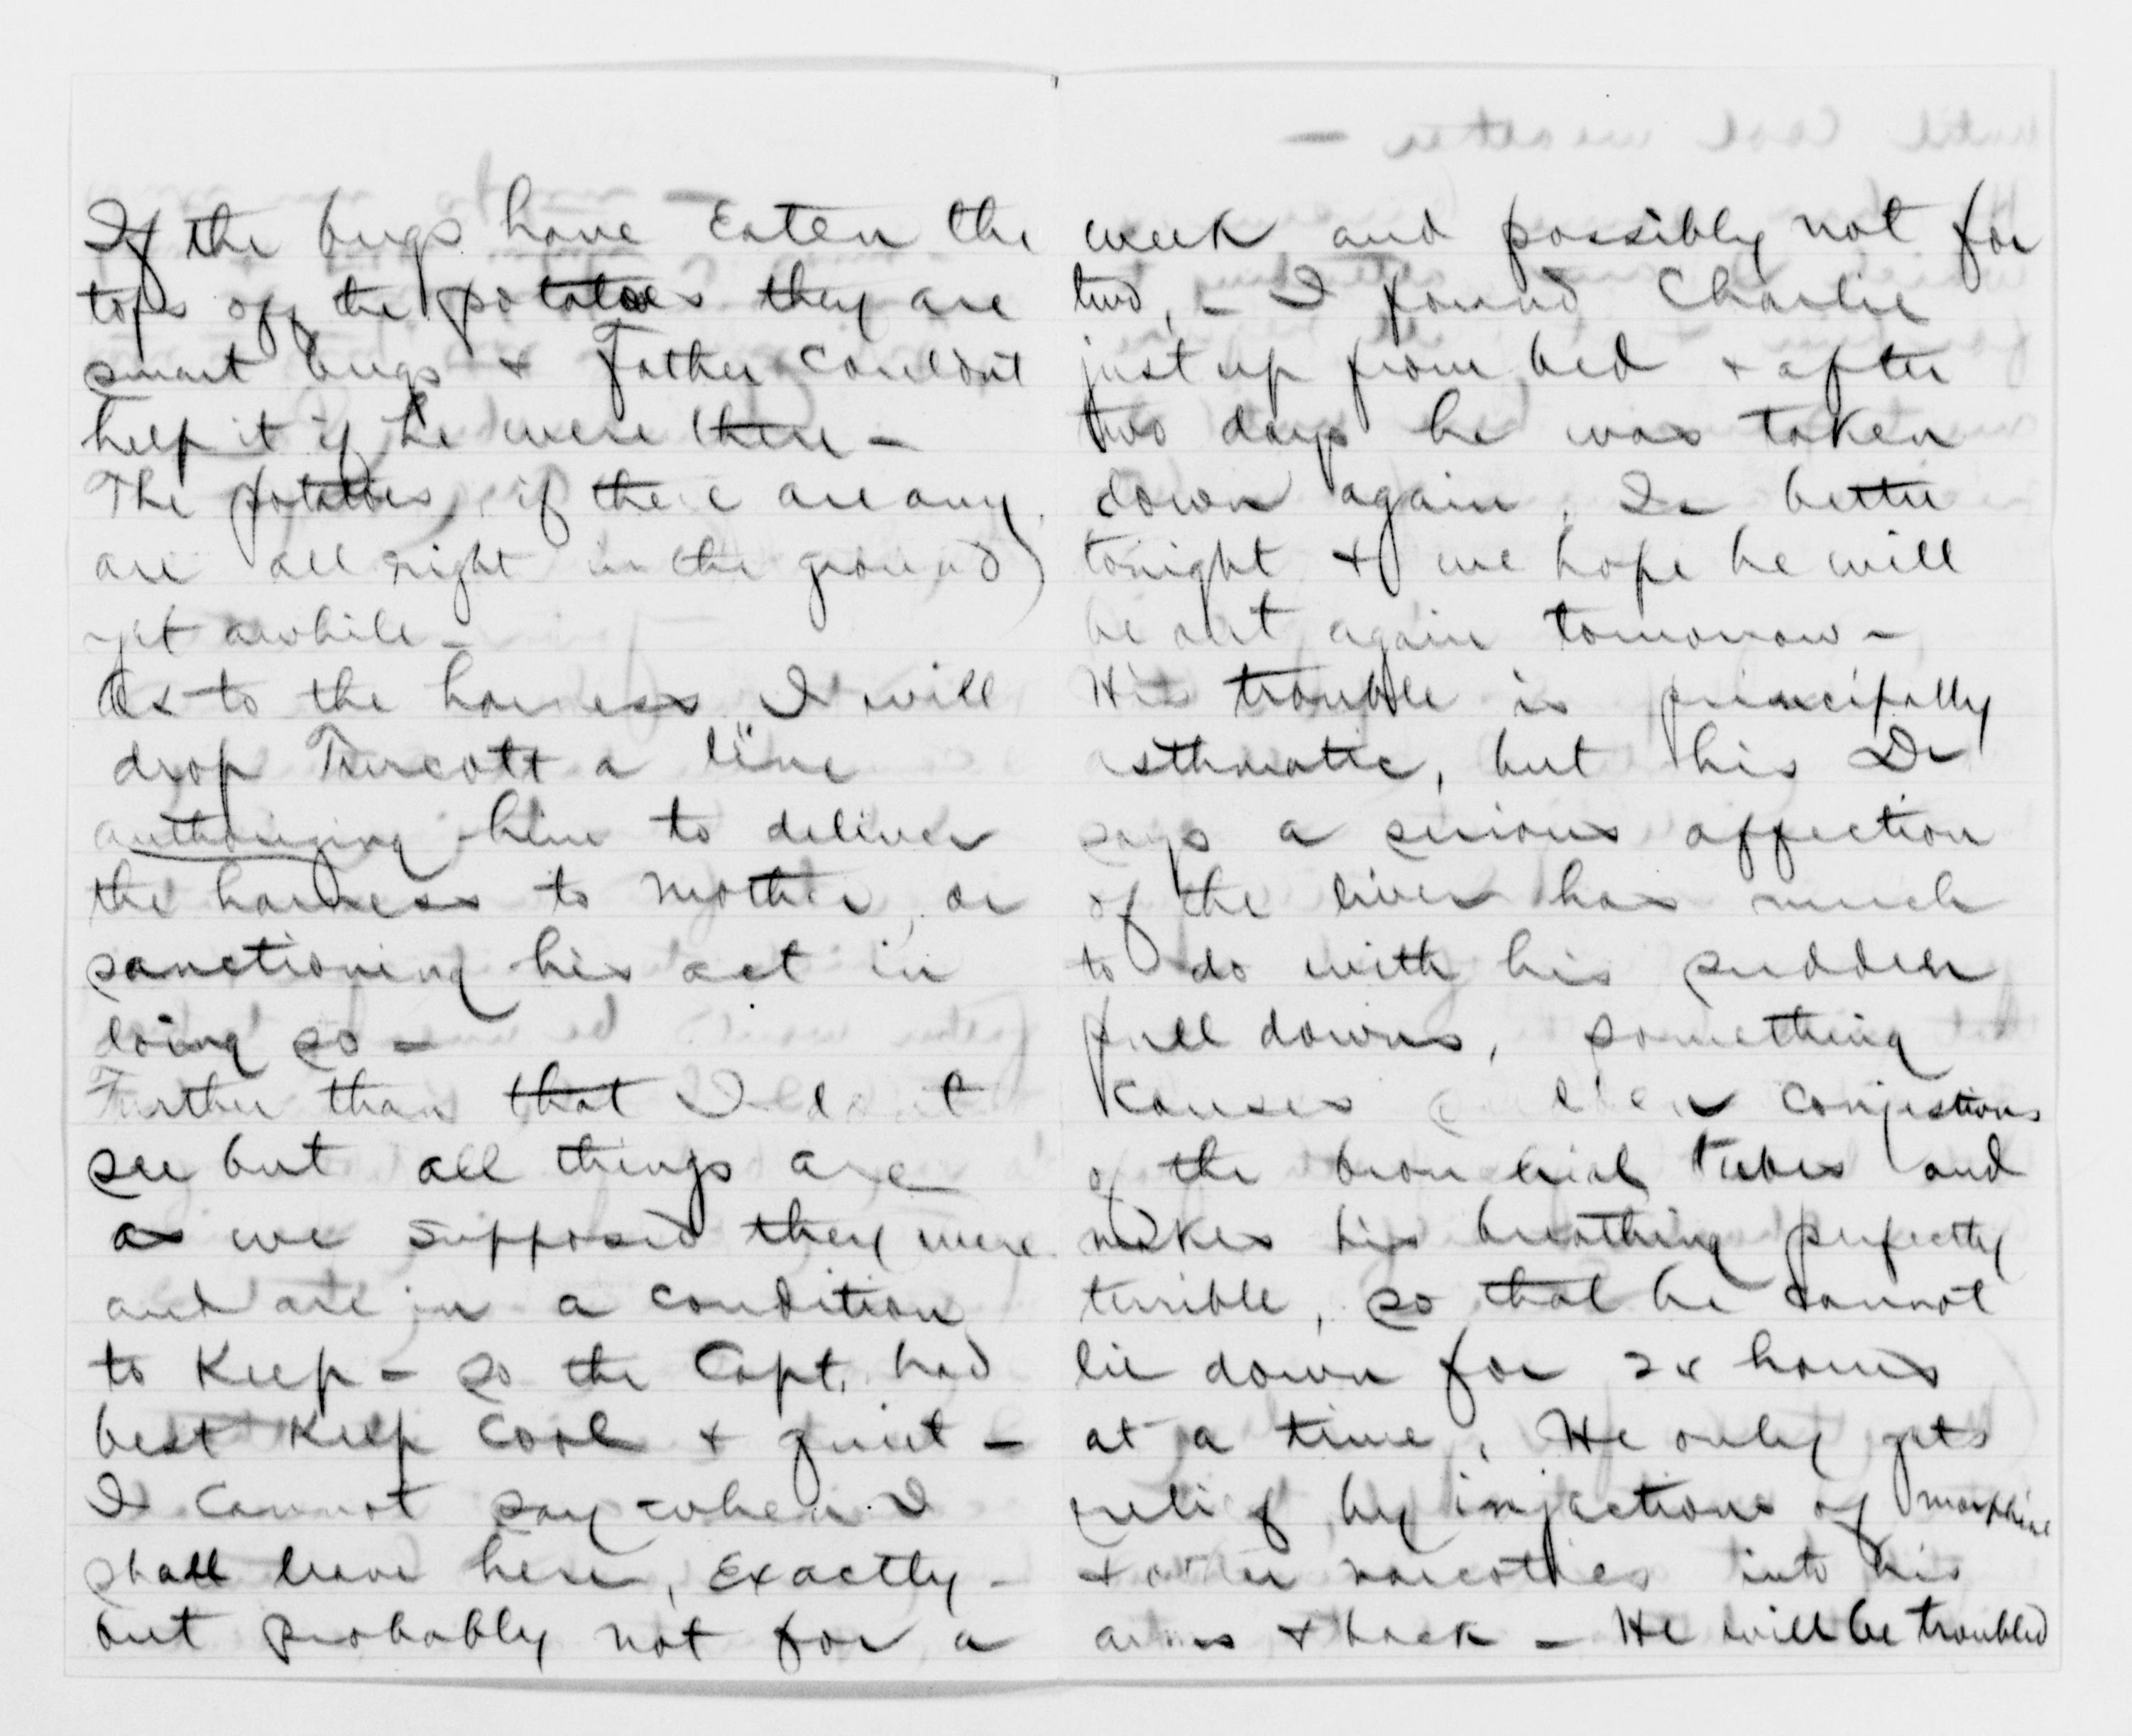 If the bugs have Eaten the
tops off the potatoes they are
smart bugs & Father Couldn't
help it if he were there -
The potatoes, if there are any
are all right in the ground)
yet awhile -
As to the harness I will
drop Turcott a line
authorizing him to deliver
the harness to Mother, or
sanctioning his act in
doing so -
Further than that I don't
see but all things are
as we supposed they were
and are in a condition
to Keep - so the Capt. had
best Keep Cool & quiet -
I Cannot say when I
shall leave here, Exactly -
but probably not for a
week and possibly not for
two, - I found Charlie
just up from bed & after
two days he was taken
down again, Is better
tonight & we hope he will
be out again tomorrow -
His trouble is principally
asthmatic, but his Dr
says a serious affection
of the liver has much
to do with his sudden
pull downs, something
Causes sudden Conjestions
of the bronchial tubes and
makes his breathing perfectly
terrible, so that he cannot
lie down for 24 hours
at a time, He only gets
relief by injections of morphine
& other narcotics into his
arms & back - He will be troubled
until Cool weather -